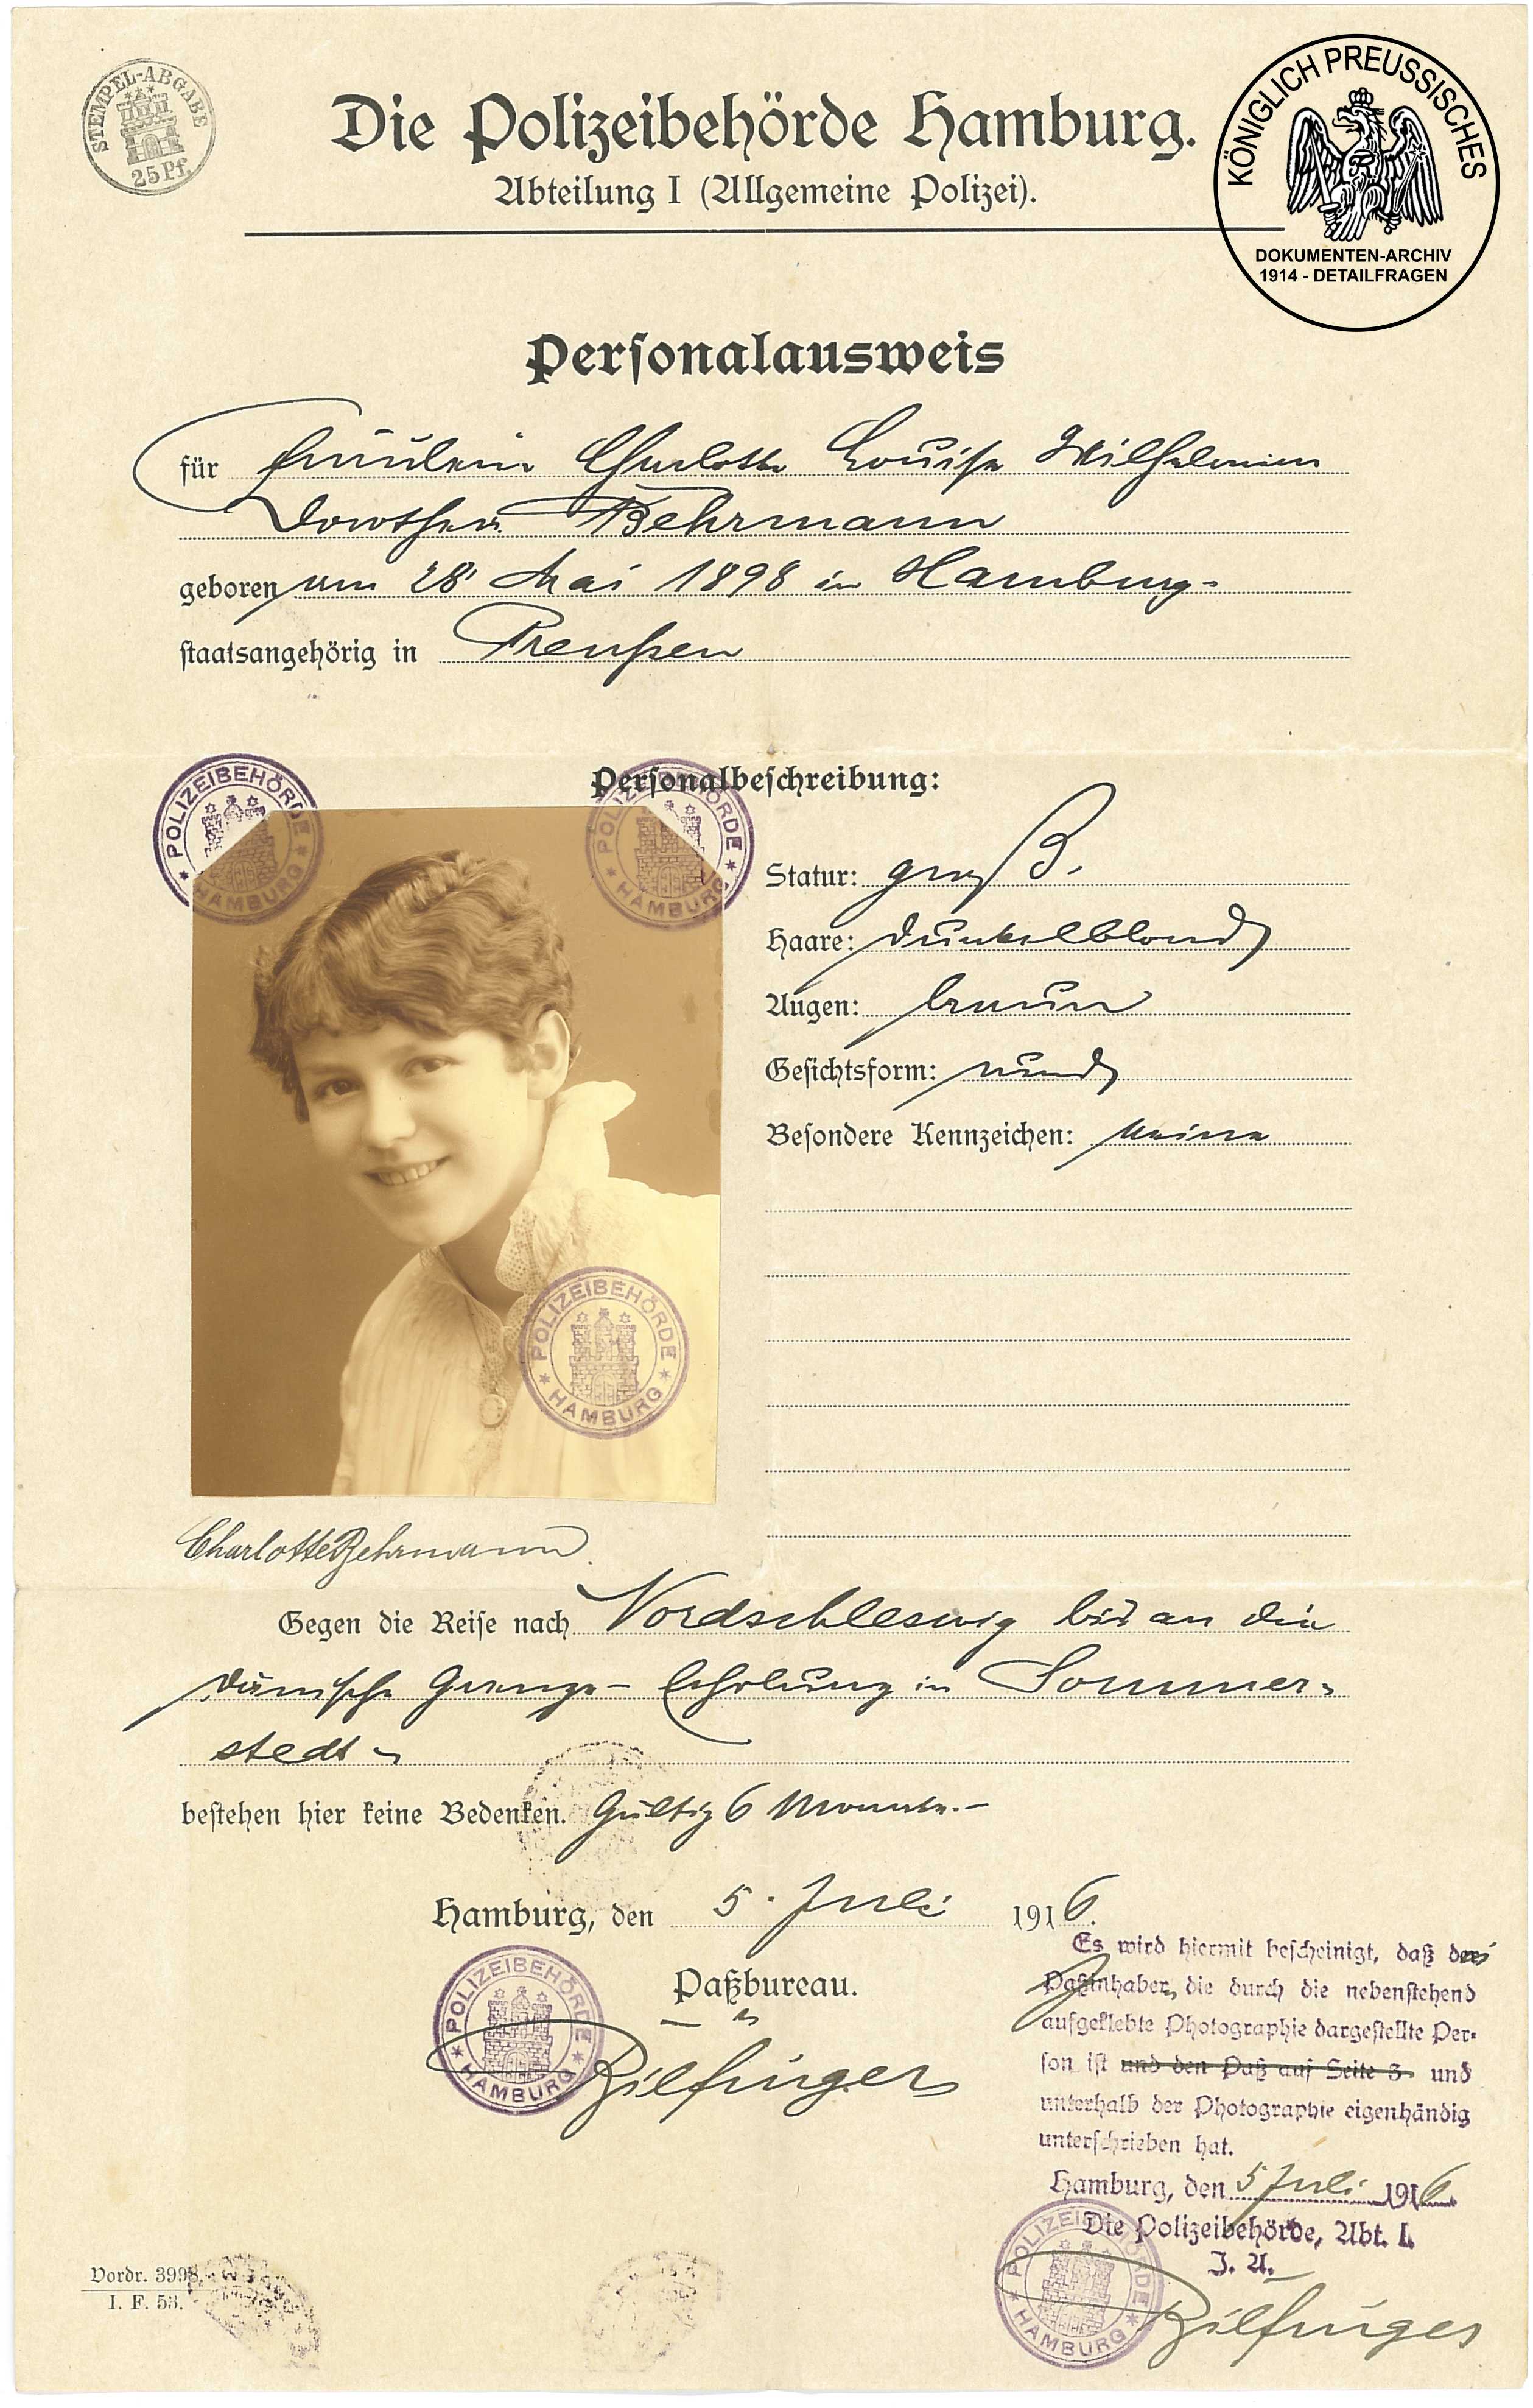 STEMPEL-ABGABE
25 Pf.
Die Polizeibehörde Hamburg.
Abteilung I (Allgemeine Polizei).
KÖNIGLICH PREUSSISCHES
DOKUMENTEN-ARCHIV
1914 - DETAILFRAGEN
Personalausweis
für Fräulein Charlotte Louise Wilhelmine
Dorothea Behrmann
geboren am 28 Mai 1898 in Hamburg-
staatsangehörig in Preußen
POLIZEIBEHÖRDE
* HAMBURG *
POLIZEIBEHÖRDE
* HAMBURG *
Personalbeschreibung:
Statur: groß.
Haare: dunkelblond
Augen: braun
Gesichtsform: rund
Besondere Kennzeichen: keine
POLIZEIBEHÖRDE
* HAMBURG *
Charlotte Behrmann.
Gegen die Reise nach Nordschleswig bis an die
dänische Grenze - Erholung in Sommer-
stedt -
bestehen hier keine Bedenken. Gültig 6 Monate.-
Hamburg, den 5. Juli 1916.
Paßbureau.
POLIZEIBEHÖRDE
* HAMBURG *
Bilfinger
Es wird hiermit bescheinigt, daß der
Paßinhaber, die durch die nebenstehend
aufgeklebte Photographie dargestellte Per-
son ist und den Paß auf Seite 3 und
unterhalb der Photographie eigenhändig
unterschrieben hat.
Hamburg, den 5 Juli 1916
Die Polizeibehörde, Abt. I.
J. A.
POLIZEIBEHÖRDE
* HAMBURG *
Bilfinger
Vordr. 3998.
I. F. 53.